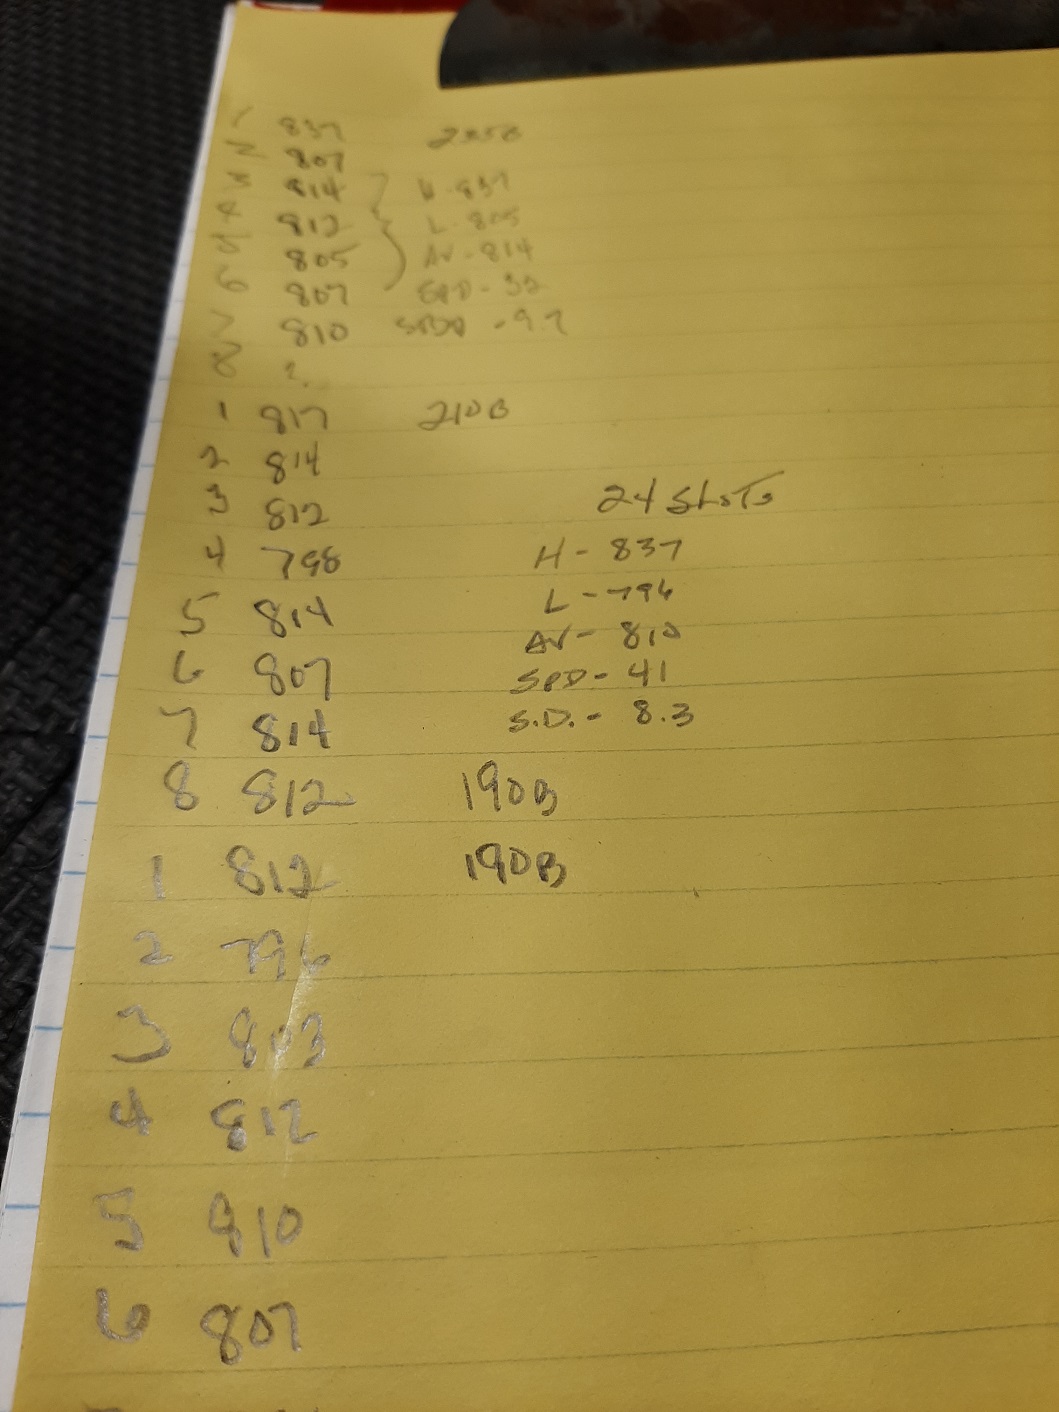 1 837
2 807
3 814 H-837
4 812 L-805
5 805 AV-814
6 807 SPD-32
7 810 -9.7
8 ?
1 817 210B
2 814
3 812 24 SHOTS
4 798 H-837
5 814 L-796
6 807 AV-810
7 814 SPD-41
S.D.-8.3
8 812 190B
1 812 190B
2 796
3 803
4 812
5 810
6 807